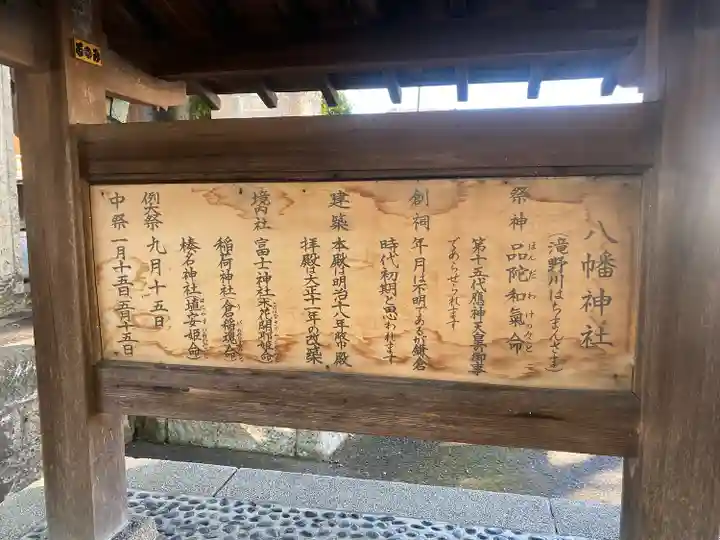 八幡神社
(滝野川はちまんさま)
祭神 品陀和氣命
ほんだわけのみこと
第十五代應神天皇の御事
であらせられます
創祠 年月は不明であるが鎌倉
時代初期と思われます
建築 本殿は明治十八年幣殿
拝殿は大正十一年の改築
境内社 富士神社(木花開耶姫命)
稲荷神社(倉稲魂命)
榛名神社(埴安姫命)
例大祭 九月十五日
中祭 一月十五日、五月十五日